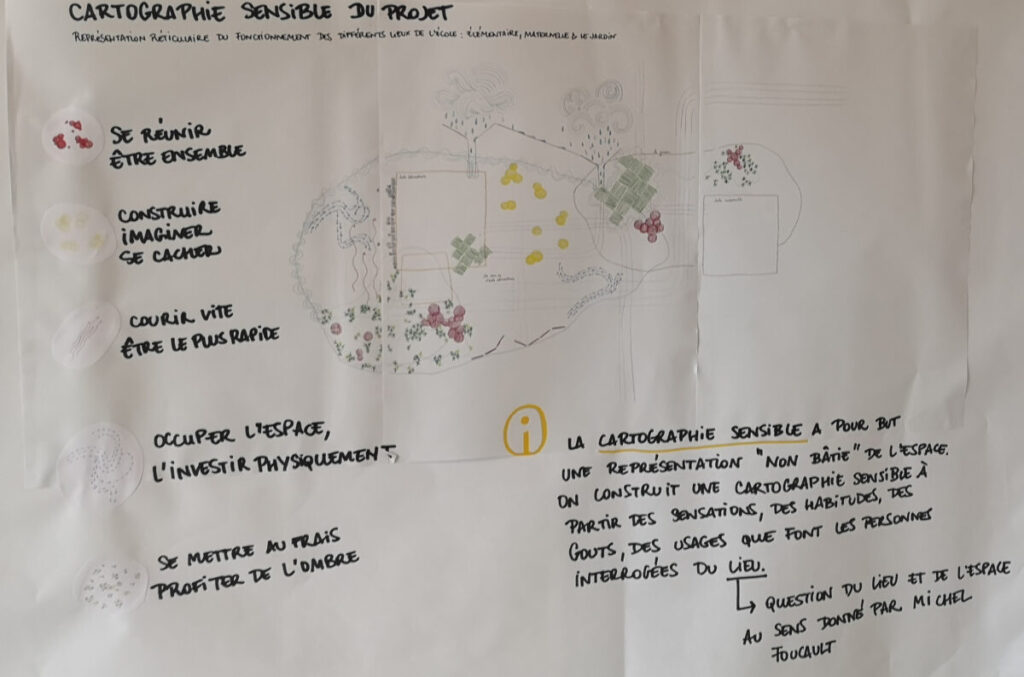 CARTOGRAPHIE SENSIBLE DU PROJET
REPRÉSENTATION RÉTICULAIRE DU FONCTIONNEMENT DES DIFFÉRENTS LIEUX DE L'ÉCOLE : ÉLÉMENTAIRE, MATERNELLE & LE JARDIN
SE RÉUNIR
ÊTRE ENSEMBLE
CONSTRUIRE
IMAGINER
SE CACHER
COURIR VITE
ÊTRE LE PLUS RAPIDE
OCCUPER L'ESPACE,
L'INVESTIR PHYSIQUEMENT,
SE METTRE AU FRAIS
PROFITER DE L'OMBRE
i
LA CARTOGRAPHIE SENSIBLE A POUR BUT
UNE REPRÉSENTATION "NON BÂTIE" DE L'ESPACE.
ON CONSTRUIT UNE CARTOGRAPHIE SENSIBLE À
PARTIR DES SENSATIONS, DES HABITUDES, DES
GOUTS, DES USAGES QUE FONT LES PERSONNES
INTERROGÉES DU LIEU.
QUESTION DU LIEU ET DE L'ESPACE
AU SENS DONNÉ PAR MICHEL
FOUCAULT